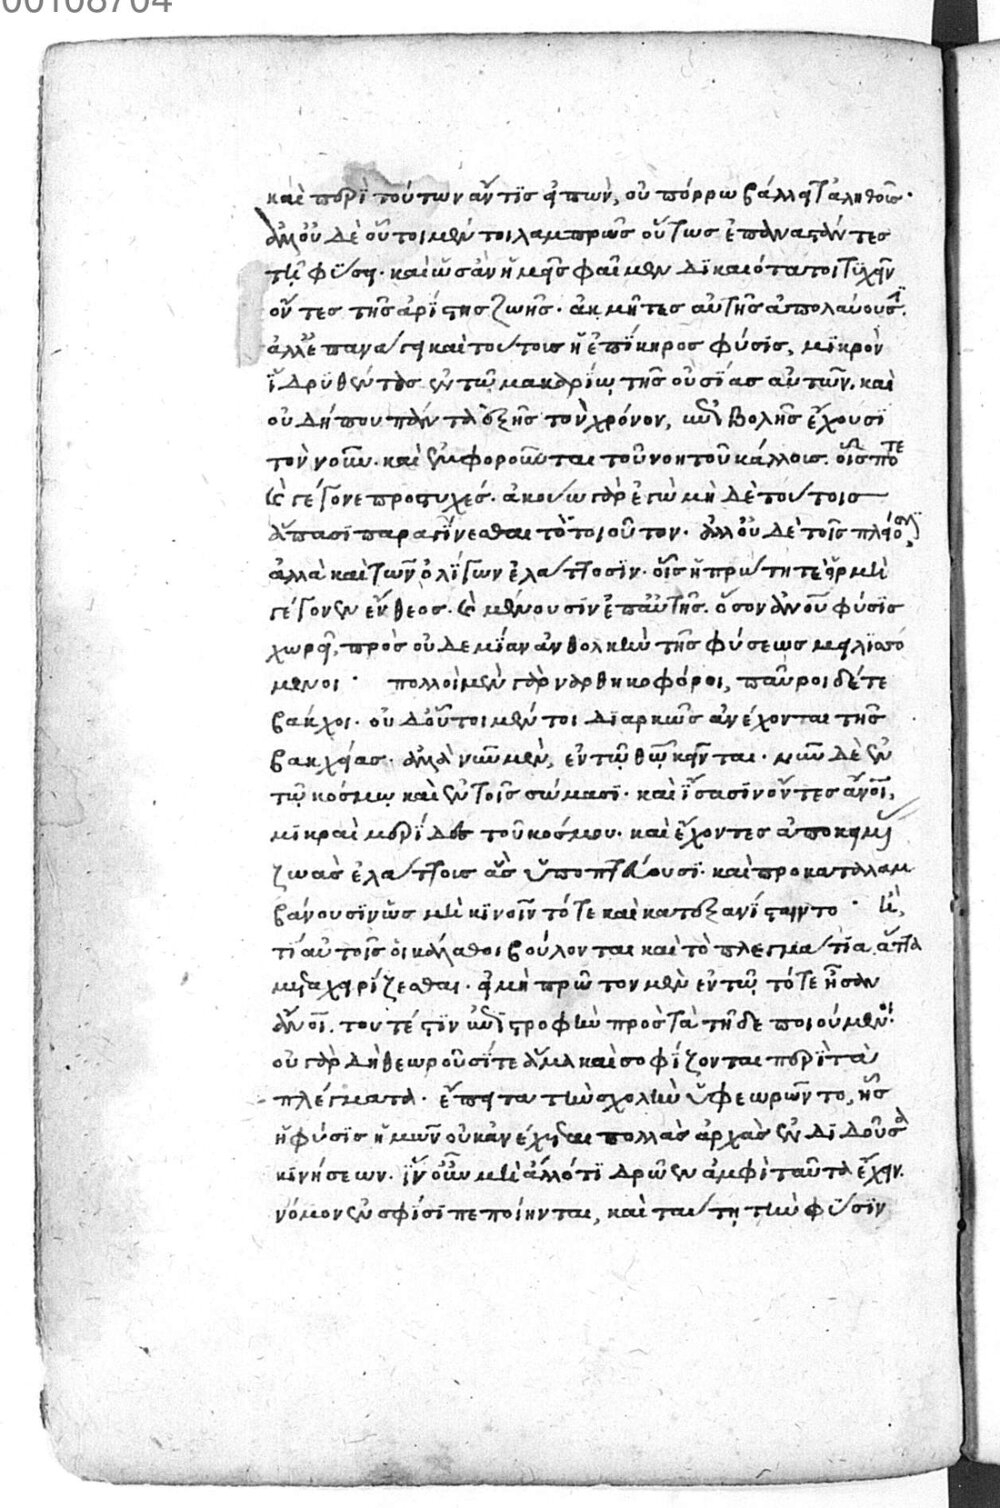 00108704
καὶ περὶ τούτων ἄν τις εἰπὼν, οὐ πόρρω βάλλει τἀληθοῦς·
ἀλλ' οὐδὲ οὗτοι μέν τοι λαμπρῶς οὕτως ἐπαναστάντες
τῆ φύσει· καὶ ὡς ἂν ἡμεῖς φαῖμεν δικαιότατοι τυχεῖν
ὄντες τῆς ἀρίστης ζωῆς· ἀκμῆτες αὐτῆς ἀπολαύουσιν·
ἀλλ' ἐπανάγει καὶ τούτοις ἡ ἐπίκηρος φύσις, μικρὸν
ἱδρυθέντας ἐν τῶ μακαρίω τῆς οὐσίας αὐτῶν, καὶ
οὐ δήπου πάντα ἑξῆς τὸν χρόνον, μετ' ἐμβολῆς ἔχουσι
τὸν νοῦν· καὶ ἐμφοροῦνται τοῦ νοητοῦ κάλλους. οἷς ποτε
καὶ γέγονε προστυχές· ἀκούω γὰρ ἐγὼ μὴ δὲ τούτοις
ἅπασι παραγίνεσθαι τὸ τοιοῦτον· ἀλλ' οὐδὲ τοῖς πλείοσιν,
ἀλλὰ καὶ τῶν ὀλίγων ἐλάττοσιν· οἷς ἡ πρώτη τε ὁρμὴ
γέγονεν ἔνθεος· καὶ μένουσιν ἐπ' αὐτῆς· ὅσον ἀνοῦ φύσις
χωρεῖ, πρὸς οὐδεμίαν ἀνθολκὴν τῆς φύσεως μειλισσό
μενοι· πολλοὶ μὲν γὰρ ναρθηκοφόροι, παῦροι δέ τε
βάκχοι· οὐδ' οὗτοι μέν τοι διαρκῶς ἀνέχονται τῆς
βακχείας· ἀλλὰ νῦν μὲν, ἐν τῶ θεῶ κεῖνται· νῦν δὲ ἐν
τῶ κόσμω καὶ ἐν τοῖς σώμασι· καὶ ἴσασιν ὄντες ἄνοι,
μικραὶ μερίδες τοῦ κόσμου· καὶ ἔχοντες ἀποκειμένας
ζωὰς ἐλάττους ἃς ὑποπτεύουσι· καὶ προκαταλαμ
βάνουσιν ὡς μὴ κινοῖντό τε καὶ κατεξανίσταιντο· ἢ,
τί αὐτοῖς οἱ κάλαθοι βούλονται καὶ τὸ πλεγμάτια ἄττα
μεταχειρίζεσθαι· εἰ μὴ πρῶτον μὲν ἐν τῶ τότε ἦσαν
ἄνοι. τουτέστιν ἐπιστροφὴν πρὸς τὰ τῆδε ποιούμενοι·
οὐ γὰρ δὴ θεωροῦσί τε ἅμα καὶ σοφίζονται περὶ τὰ
πλέγματα· ἔπειτα τὴν σχολὴν ὑφεωρῶντο, ἧς
ἡ φύσις ἡμῶν οὐκ ἀνέχεται πολλὰς ἀρχὰς ἐνδιδοῦσα
κινήσεων· ἵν' οὖν μὴ ἄλλό τι δρῶεν ἀμφὶ ταῦτα ἔχειν.
νόμον ἐν σφίσι πεποίηνται, καὶ ταύτη τὴν φύσιν